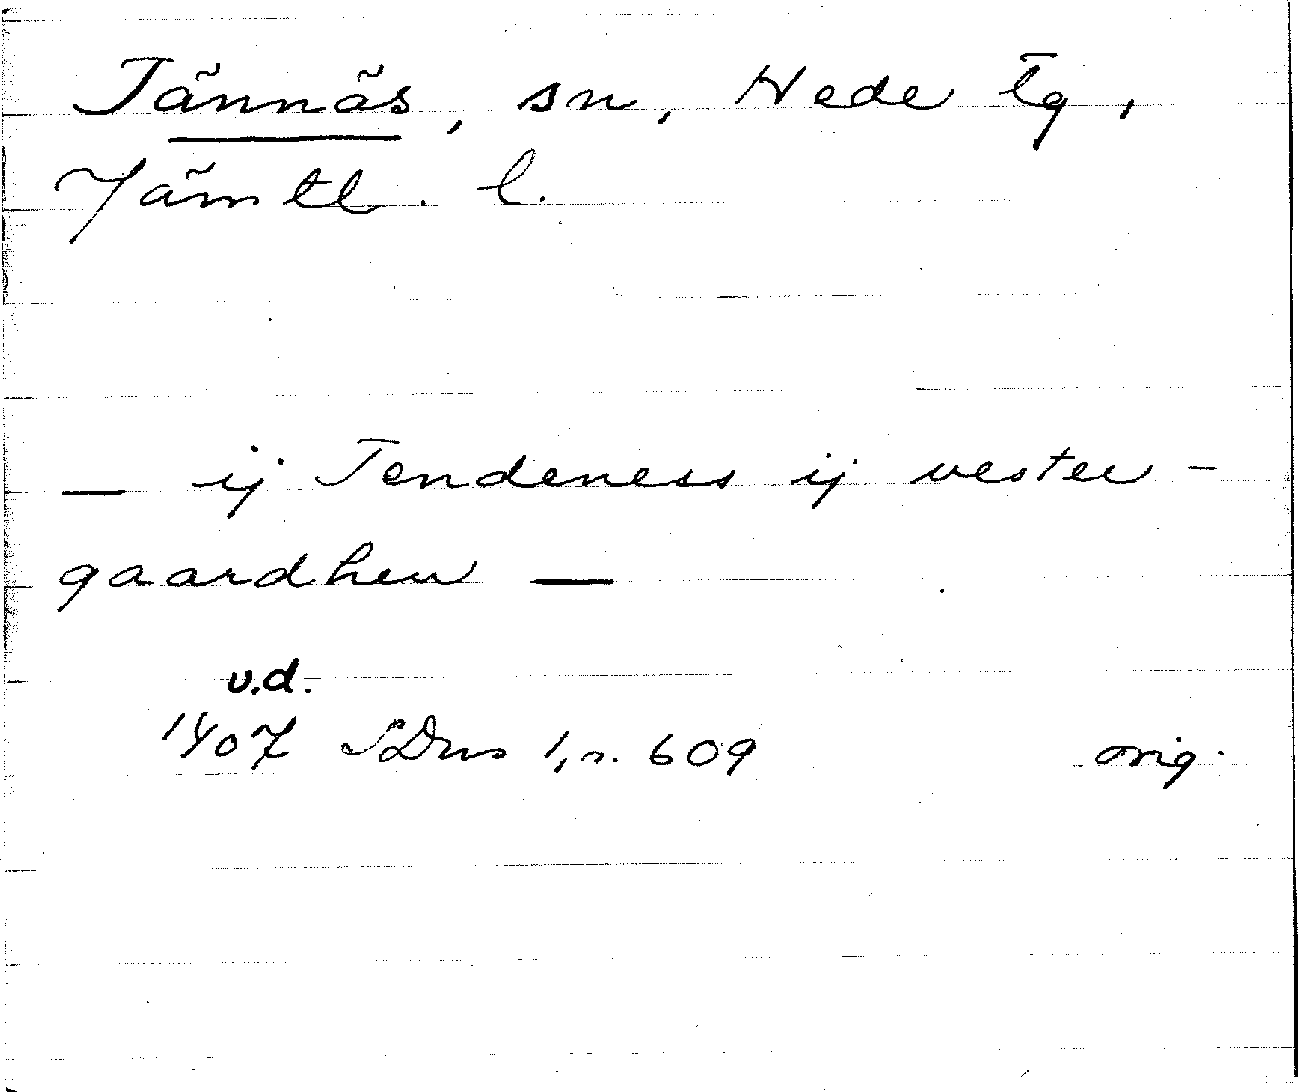 Tännäs, sn, Hede tg,
Jämtl. l.
— ij Tendeness ij vester-
gaardhen —
u.d.
1407 SDns 1, n. 609 orig.